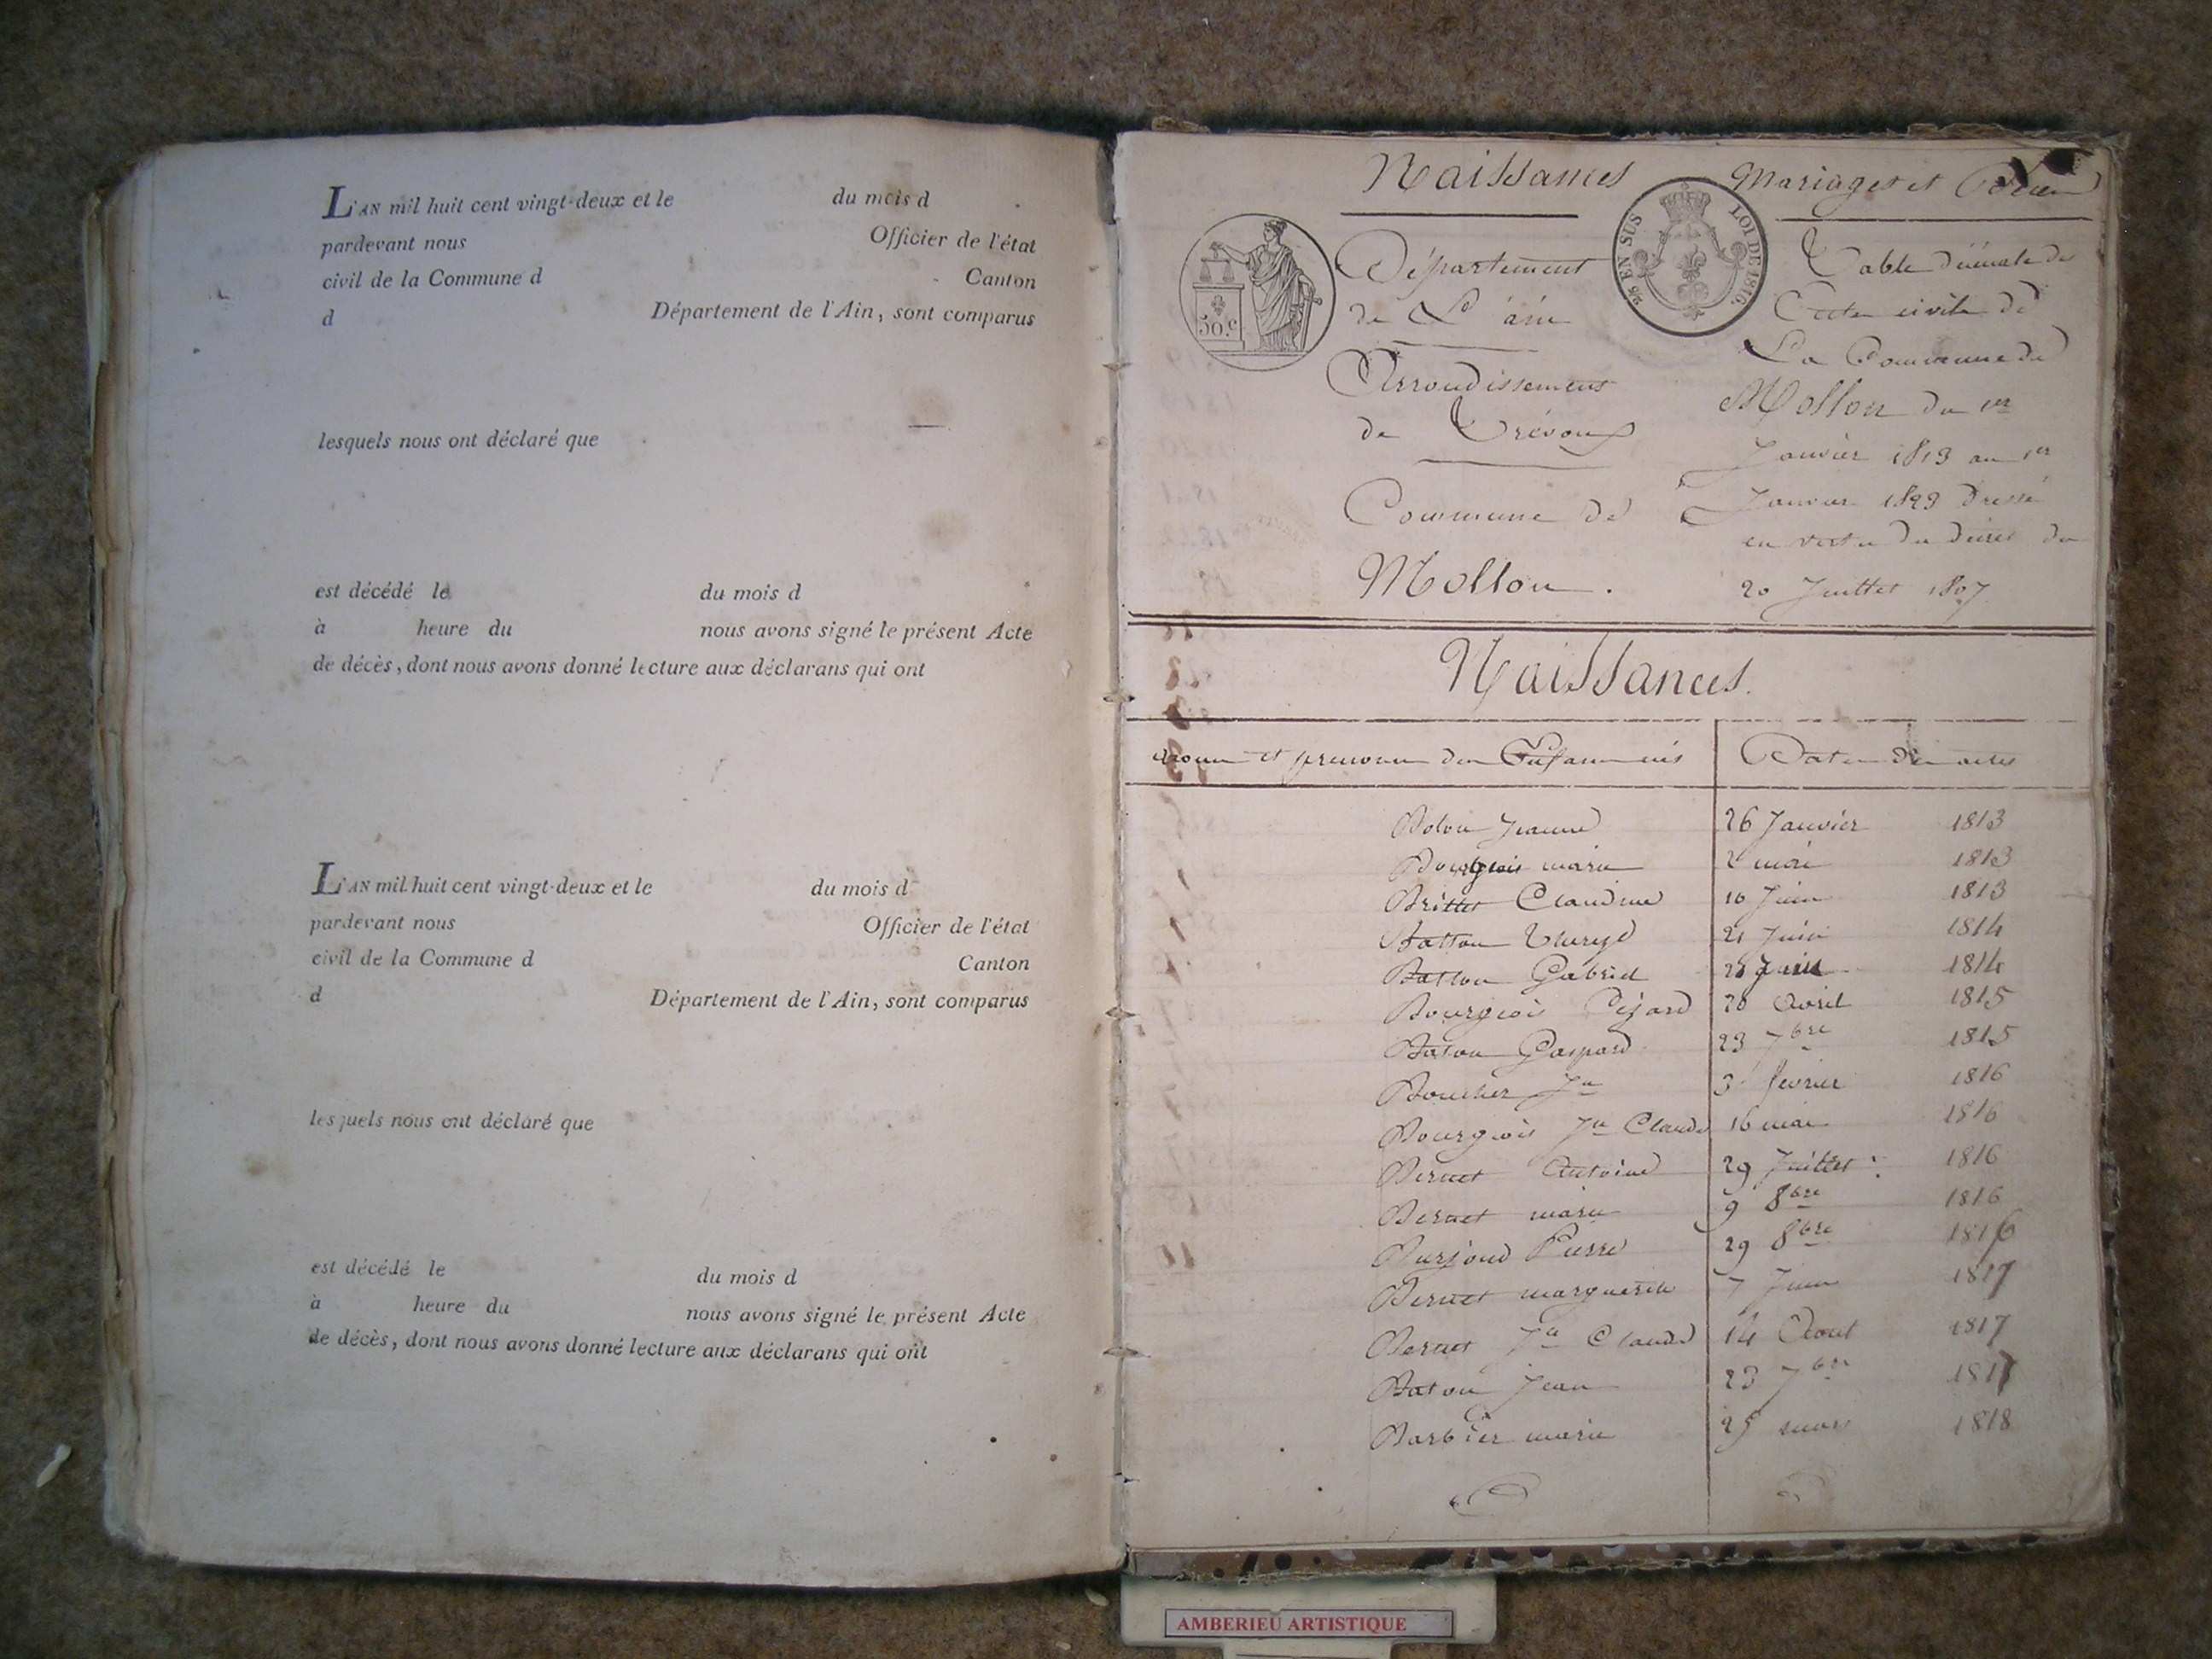 L'AN mil huit cent vingt-deux et le du mois d
pardevant nous Officier de l'état
civil de la Commune d Canton
d Département de l'Ain, sont comparus
lesquels nous ont déclaré que
est décédé le du mois d
à heure du nous avons signé le présent Acte
de décès, dont nous avons donné lecture aux déclarans qui ont
L'AN mil huit cent vingt-deux et le du mois d
pardevant nous Officier de l'état
civil de la Commune d Canton
d Département de l'Ain, sont comparus
lesquels nous ont déclaré que
est décédé le du mois d
à heure du nous avons signé le présent Acte
de décès, dont nous avons donné lecture aux déclarans qui ont
Naissances Mariages et
50.c
25 EN SUS LOI DE 1816.
Département
de L'ain
Arrondissement
de Trévoux
Commune de
Mollon.
Table décénale des
Actes civils de
La Commune de
Mollon du 1er
Janvier 1813 au 1er
Janvier 1823 Dressé
en vertu du décret du
20 Juillet 1807
Naissances.
noms et prenoms des Enfans nés Dates des actes
Bolon Jeanne 26 Janvier 1813
Bourgeois marie 2 mai 1813
Brittet Claudine 16 Juin 1813
Batton 21 Juin 1814
Batton Gabriel Juin 1814
Bourgeois 20 Avril 1815
Baton Gaspard 23 7bre 1815
Boucher Jn 3 fevrier 1816
Bourgeois Jn Claude 16 mai 1816
Bernet Antoine 29 Juillet 1816
Bernet marie 9 8bre 1816
Pierre 29 8bre 1816
Bernet marguerite 7 Juin 1817
Bernet Jn Claude 14 Aout 1817
Baton Jean 23 7bre 1817
Barbier marie 25 mars 1818
AMBERIEU ARTISTIQUE